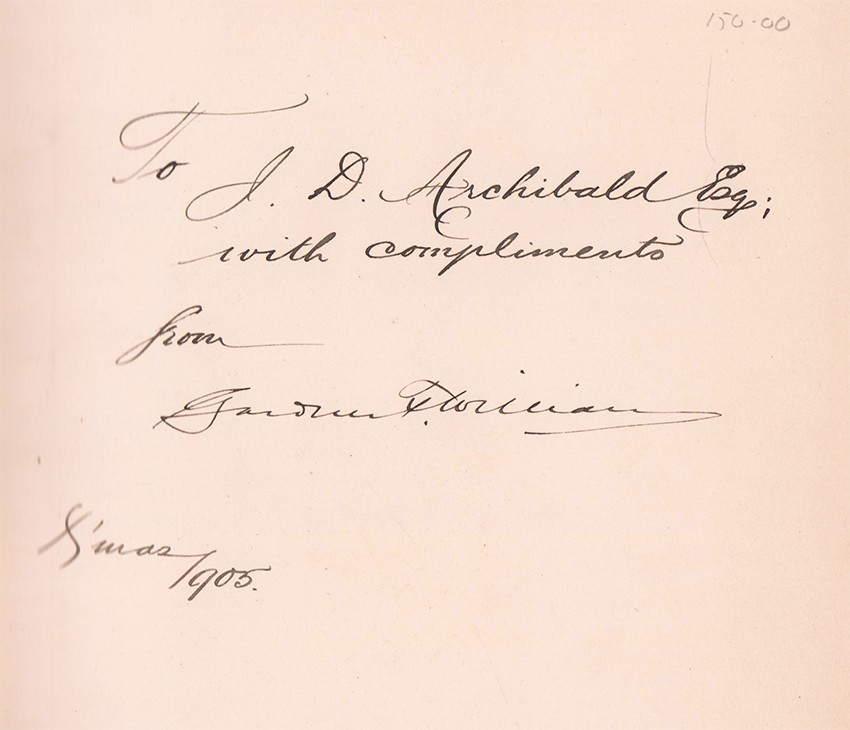 150-00
To
J. D. Archibald Esq;
with compliments
from
Gardner F. Williams
X'mas
1905.